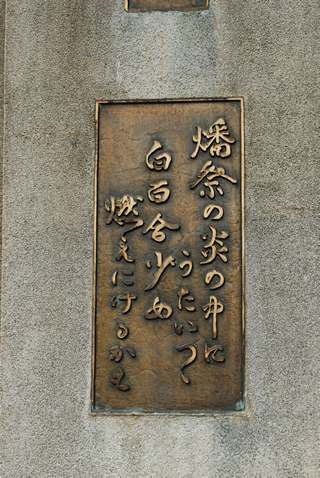 燔祭の炎の中に
うたいつゝ
白百合少女
燃えにけるかも